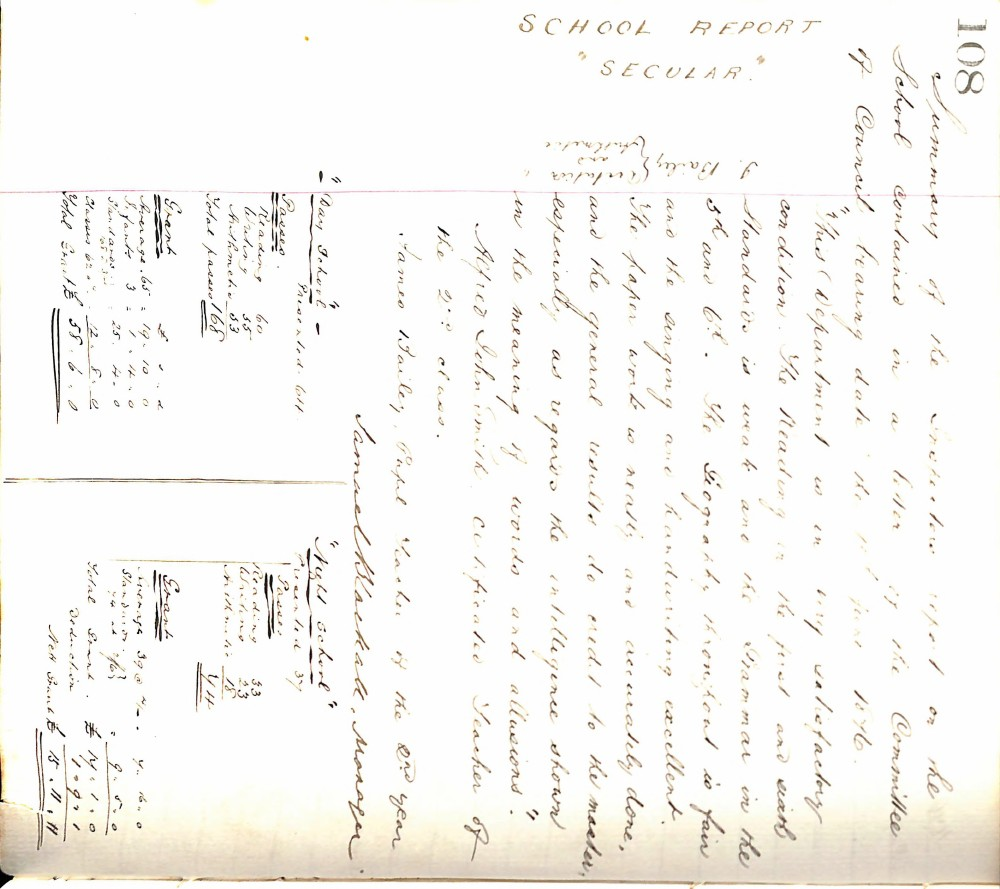 108
SCHOOL REPORT
"SECULAR."
Summary of the Inspectors report on the
School contained in a letter of the Committee
of Council bearing date the June 1876.
"This Department is in very satisfactory
condition. The Reading in the first and sixth
Standards is weak and the Grammar in the
5th and 6th. The Geography throughout is fair
and the singing and handwriting excellent.
The paper work is neatly and accurately done,
and the general results do credit to the master,
especially as regards the intelligence shown
in the meaning of words and allusions."
J. Bailey
and
Arithmetic
Alfred John Smith, Certificated Teacher of
the 2nd class.
James Bailey, Pupil Teacher of the 2nd year
Samuel Blackall, Manager.
"Day School"
Presented 64
Passes.
Reading 60
Writing 55
Arithmetic 53
Total passes 168
Grant
£ s d
Average 65 = 19.10.0
Infants 3 = 1.4.0
Standards = 25.4.0
12.8.0
Total Grant £ 58.6.0
"Night School"
Presented 37
Passes
Reading 33
Writing 23
Arithmetic 18
Grant
Average 39 @ 4/- . 7.16.0
Standards 9.5.0
Total Grant. £ 17.1.0
Deduction 1.9.1
Nett Grant £ 15.11.11